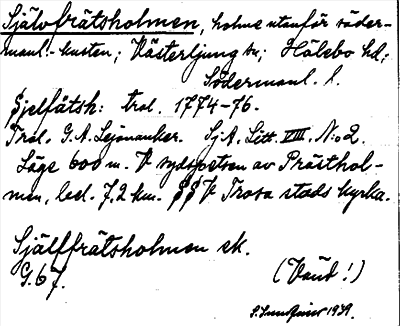 Självfrätsholmen, holme utanför söder-
manl.-kusten; Västerljung sn; Hölebo hd;
Södermanl. l.
Sjelfätsh: tral. 1774-76.
Tral. G.A. Lejonanker. SjA. Litt. VIII. No 2.
Läge 600 m. V sydspetsen av Prästhol-
men, bel. 7,2 km. SSV Trosa stads kyrka.
Själffrätsholmen ek.
G. 67.
(Vänd!)
1939.